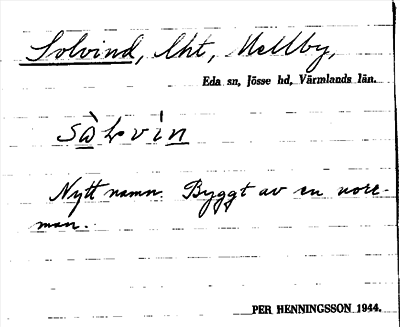 Solvind, lht, Mellby,
Eda sn, Jösse hd, Värmlands län.
Nytt namn. Byggt av en norr-
man.
PER HENNINGSSON 1944.